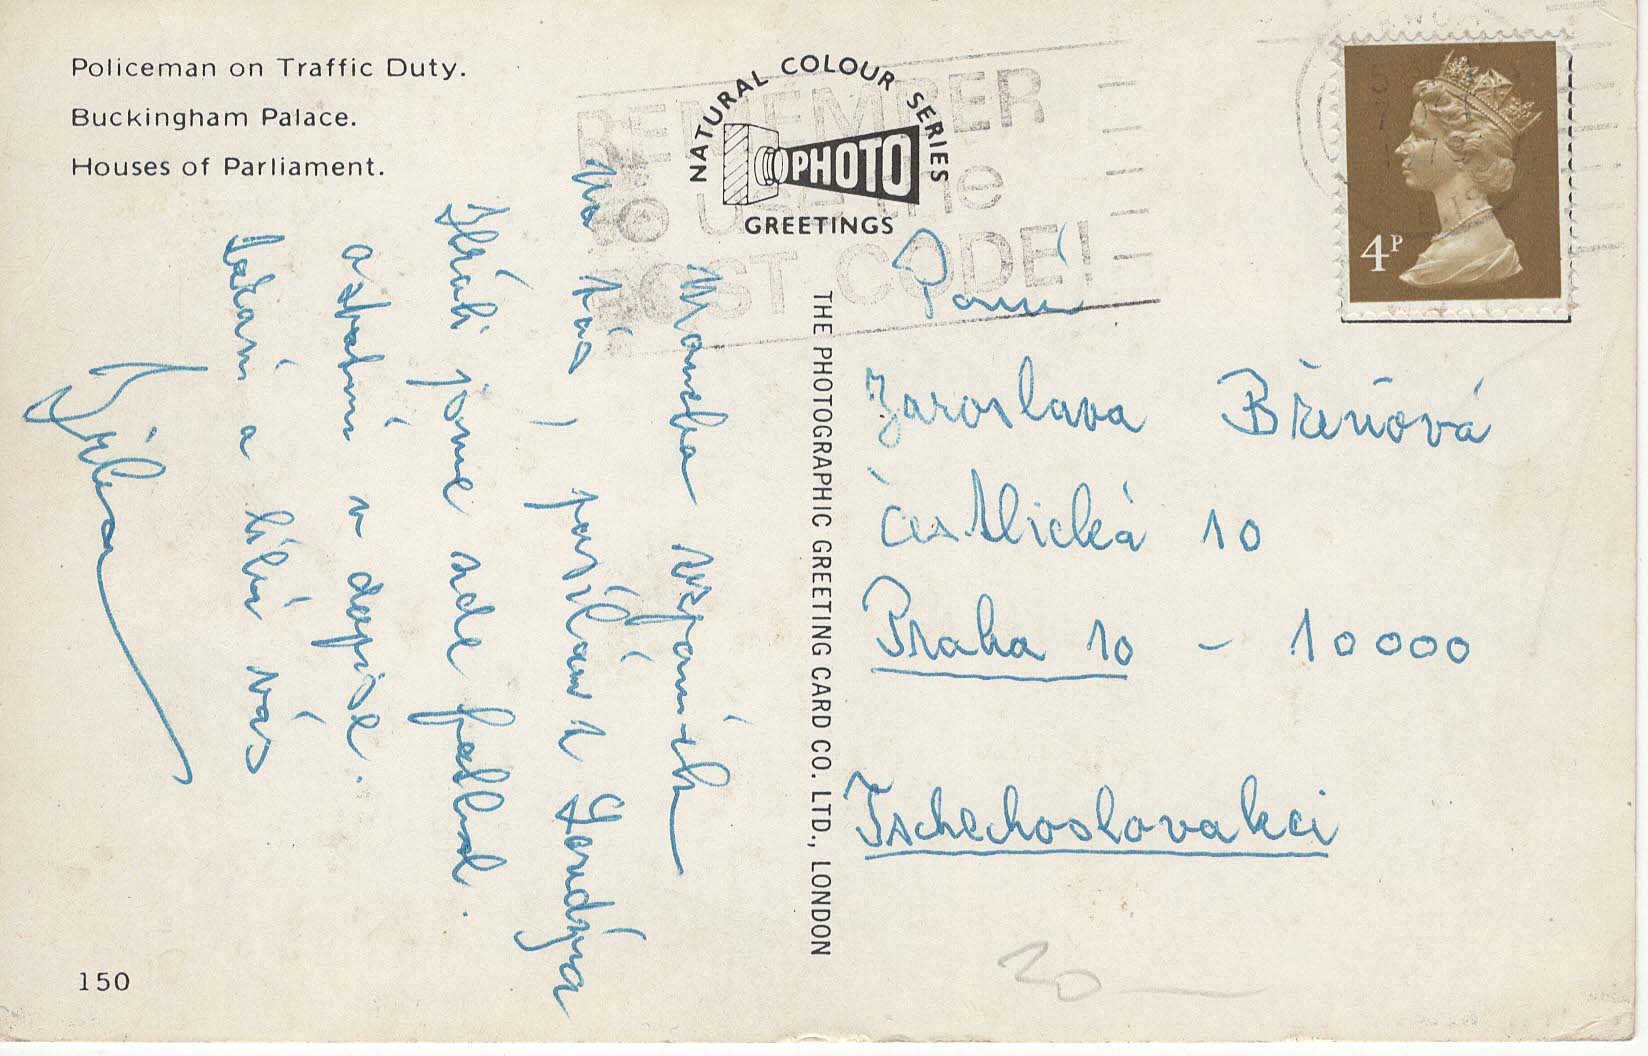 Policeman on Traffic Duty.
Buckingham Palace.
Houses of Parliament.
NATURAL COLOUR SERIES
PHOTO
GREETINGS
REMEMBER
to use the
POST CODE!
4P
Mnoho vzpomínek
na vás posílám z Londýna
Ztráveli jsme zde
ostatní v dopise.
zdraví a líbá vás
THE PHOTOGRAPHIC GREETING CARD CO. LTD., LONDON
Paní
Jaroslava Břeňová
Čestlická 10
Praha 10 - 10000
Tschechoslovakei
150
20